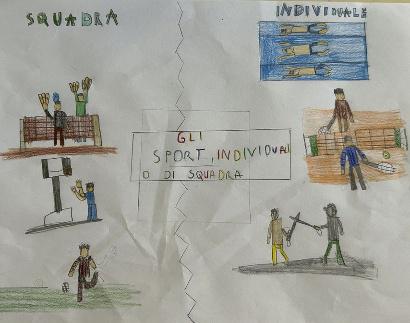 SQUADRA
INDIVIDUALE
GLI
SPORT, INDIVIDUALI
O DI SQUADRA